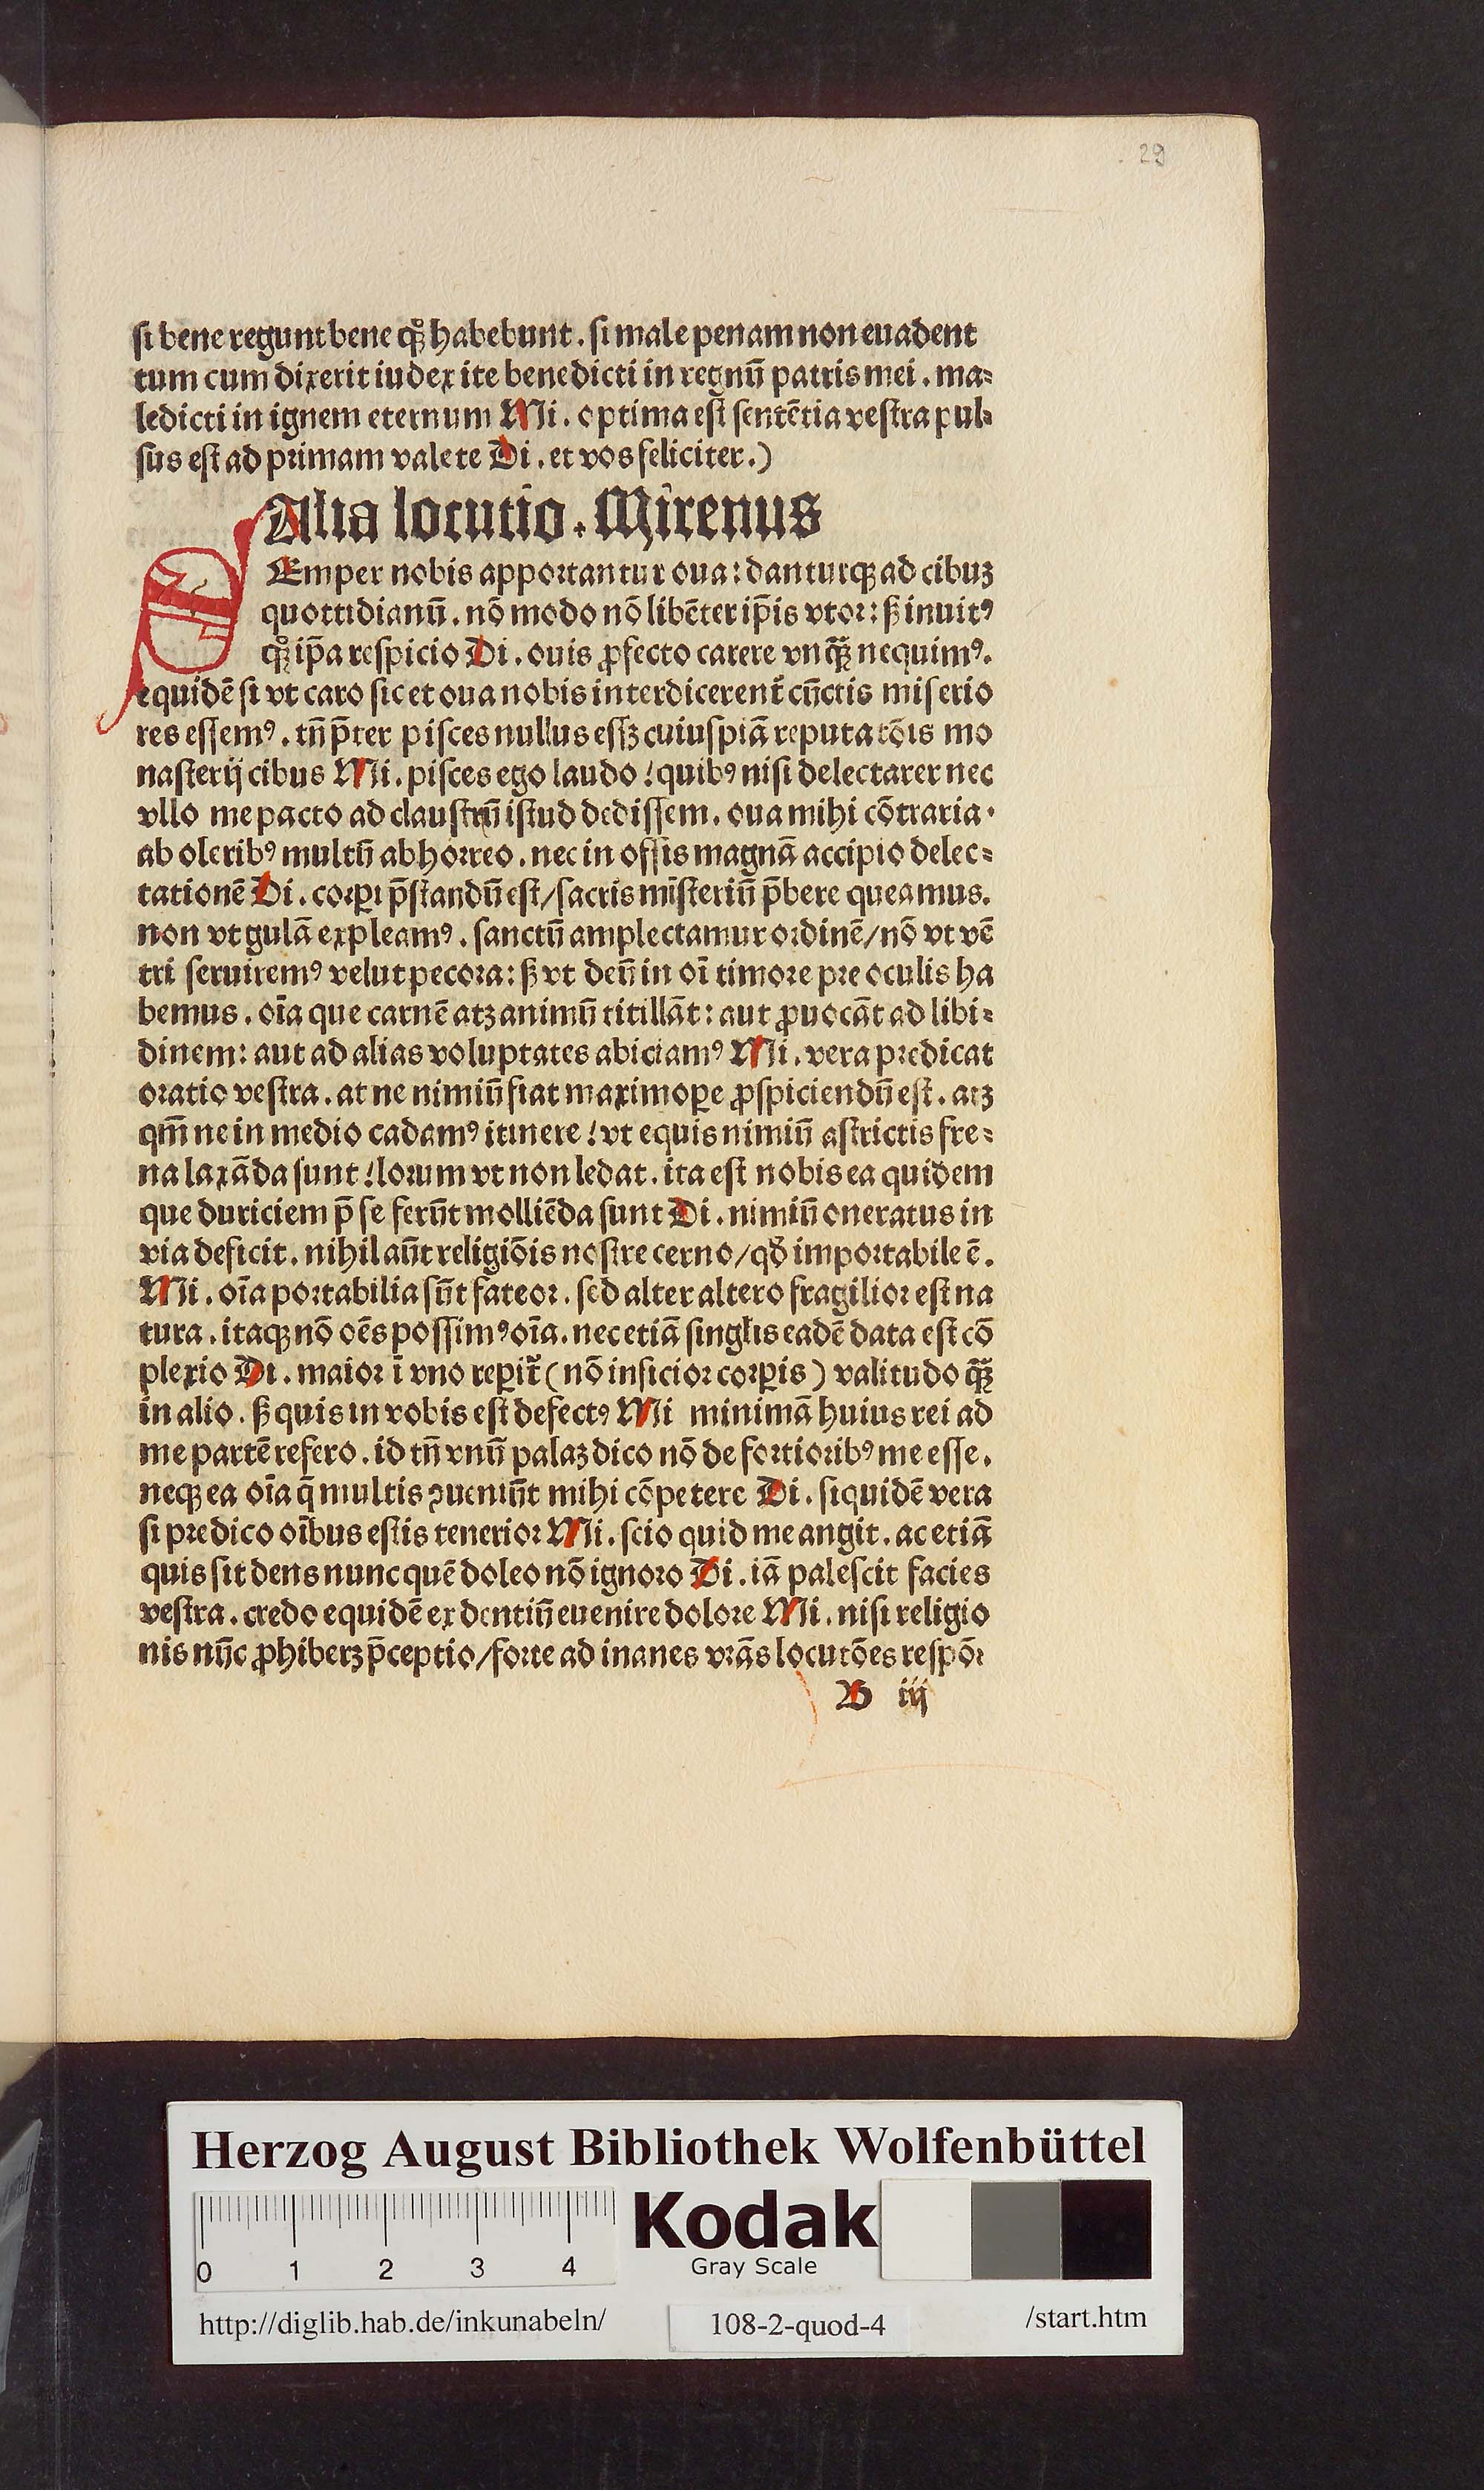 29
si bene regunt bene qꝫ habebunt. si male penam non euadent
tum cum dixerit iudex ite benedicti in regnū patris mei. ma⸗
ledicti in ignem eternum Mi. optima est sentētia vestra pul⸗
sus est ad primam valete Di. et vos feliciter.)
Alia locutio. Mirenus
SEmper nobis apportantur oua: danturqꝫ ad cibuꝫ
quottidianū. nō modo nō libēter ip̄is vtor: sꝫ inuitꝰ
qꝫ ip̄a respicio Di. ouis ꝓfecto carere vnqꝫ nequimꝰ.
equidē si vt caro sic et oua nobis interdicerent̄ cūctis miserio
res essemꝰ. tn̄ p̄ter pisces nullus essꝫ cuiuspiā reputatōis mo
nasterij cibus Mi. pisces ego laudo / quibꝰ nisi delectarer nec
vllo me pacto ad claustrū istud dedissem. oua mihi cōtraria.
ab oleribꝰ multū abhorreo. nec in offis magnā accipio delec⸗
tationē Di. corꝑi p̄standū est / sacris mīsteriū p̄bere queamus.
non vt gulā expleamꝰ. sanctū amplectamur ordinē / nō vt vē
tri seruiremꝰ velut pecora: sꝫ vt deū in oī timore pre oculis ha
bemus. oīa que carnē atꝫ animū titillāt: aut ꝓuocāt ad libi⸗
dinem: aut ad alias voluptates abiciamꝰ Mi. vera predicat
oratio vestra. at ne nimiū fiat maximoꝑe ꝓspiciendū est. atꝫ
qm̄ ne in medio cadamꝰ itinere / vt equis nimiū astrictis fre⸗
na laxāda sunt / lorum vt non ledat. ita est nobis ea quidem
que duriciem p̄ se ferūt molliēda sunt Di. nimiū oneratus in
via deficit. nihil aūt religiōis nostre cerno / qd̄ importabile ē.
Mi. oīa portabilia sūt fateor. sed alter altero fragilior est na
tura. itaqꝫ nō oēs possimꝰ oīa. nec etiā singlis eadē data est cō
plexio Di. maior ī vno reꝑit̄ (nō inficior corꝑis) valitudo qꝫ
in alio. sꝫ quis in vobis est defectꝰ Mi minimā huius rei ad
me partē refero. id tn̄ vnū palaꝫ dico nō de fortioribꝰ me esse.
neqꝫ ea oīa q̄ multis ꝯueniūt mihi cōpetere Di. siquidē vera
si predico oībus estis tenerior Mi. scio quid me angit. ac etiā
quis sit dens nunc quē doleo nō ignoro Di. iā palescit facies
vestra. credo equidē ex dentiū euenire dolore Mi. nisi religio
nis nūc ꝓhiberꝫ p̄ceptio / forte ad inanes vrās locutōes respōr
B iij
Herzog August Bibliothek Wolfenbüttel
0 1 2 3 4
Kodak
Gray Scale
http://diglib.hab.de/inkunabeln/ 108-2-quod-4 /start.htm